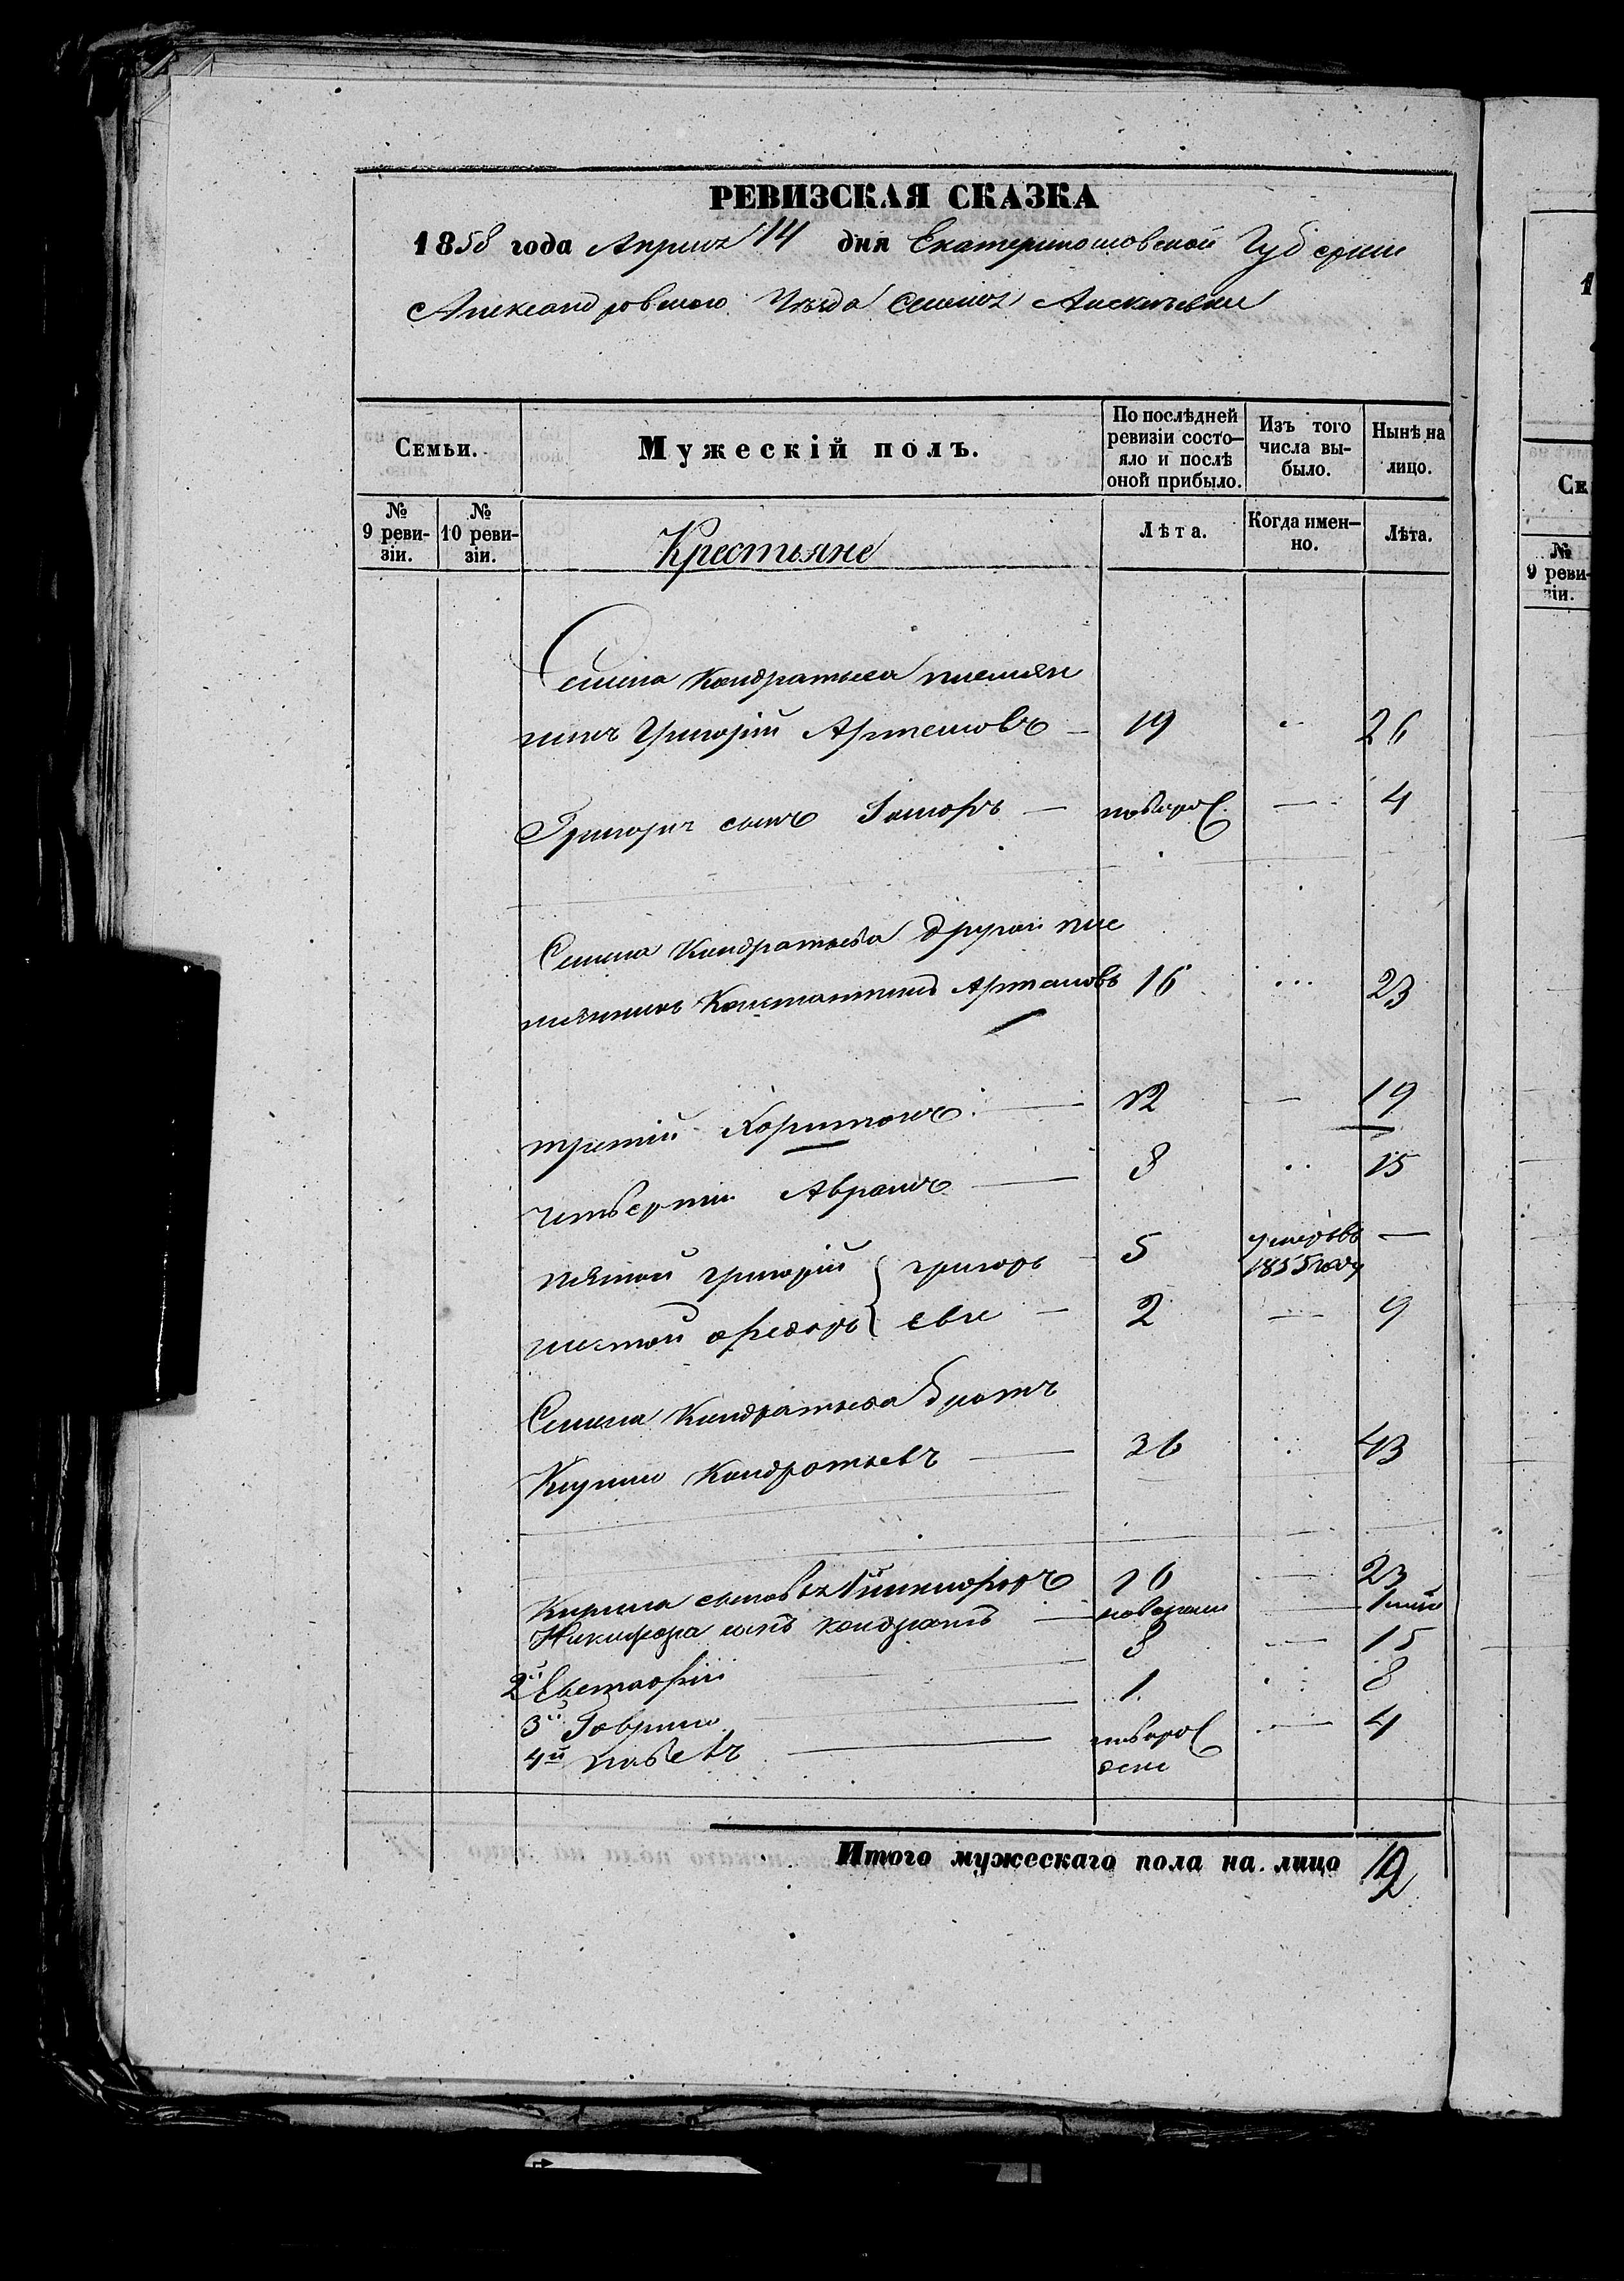 РЕВИЗСКАЯ СКАЗКА
1858 года Апреля 14 дня Екатеринославской Губернии
Александровского Уезда Селенія
Семьи. Мужескій полъ. По послѣдней ревизіи состояло и послѣ оной прибыло. Изъ того числа выбыло. Нынѣ на лицо.
№ 9 ревизіи. № 10 ревизіи. Крестьяне Лѣта. Когда именно. Лѣта.
Семена Кондратьева племян
никъ Григорій Артемовъ 19 26
Григорія сынъ новорож 4
Семена Кондратьева другой пле
мянникъ Константинъ Артамовъ 16 23
третій Харитонъ 12 19
четвертій Аврамъ 8 15
пятой Григорій } григорь 5 умеръ въ 1855 году —
шестой Федоръ } евы 2 9
Семена Кондратьева братъ
Кирило Кондратьевъ 36 43
Кирила сыновья 1й Никифоръ 16 23
Никифора сынъ Кондратъ новорожде 1
2й Евстафій 8 15
3й Гаврило 1 8
4й Павелъ новорож 4
дене
Итого мужескаго пола на лицо 12
1
№
9 реви-
зіи.